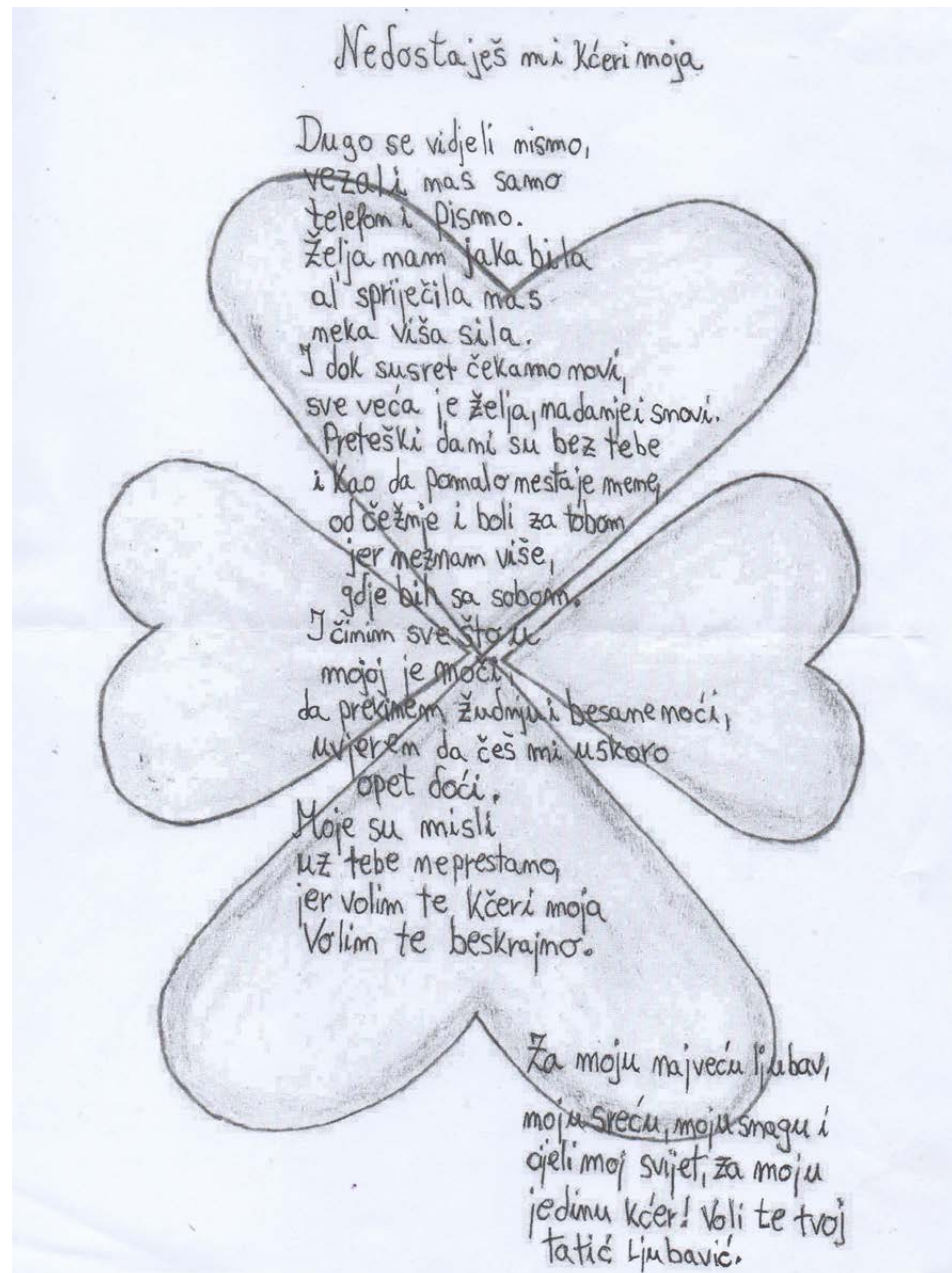 Nedostaješ mi kćeri moja
Dugo se vidjeli nismo,
vezali nas samo
telefon i pismo.
Želja nam jaka bila
al' spriječila nas
neka viša sila.
I dok susret čekamo novi,
sve veća je želja, nadanje i snovi.
Preteški dani su bez tebe
i kao da pomalo nestaje mene,
od čežnje i boli za tobom
jer neznam više,
gdje bih sa sobom.
I činim sve što u
mojoj je moči,
da prekinem žudnju i besane noći,
uvjeren da češ mi uskoro
opet doći.
Moje su misli
uz tebe neprestano,
jer volim te kčeri moja
Volim te beskrajno.
Za moju najveću ljubav,
moju sreću, moju snagu i
cjeli moj svijet, za moju
jedinu kćer! Voli te tvoj
tatić Ljubavić.